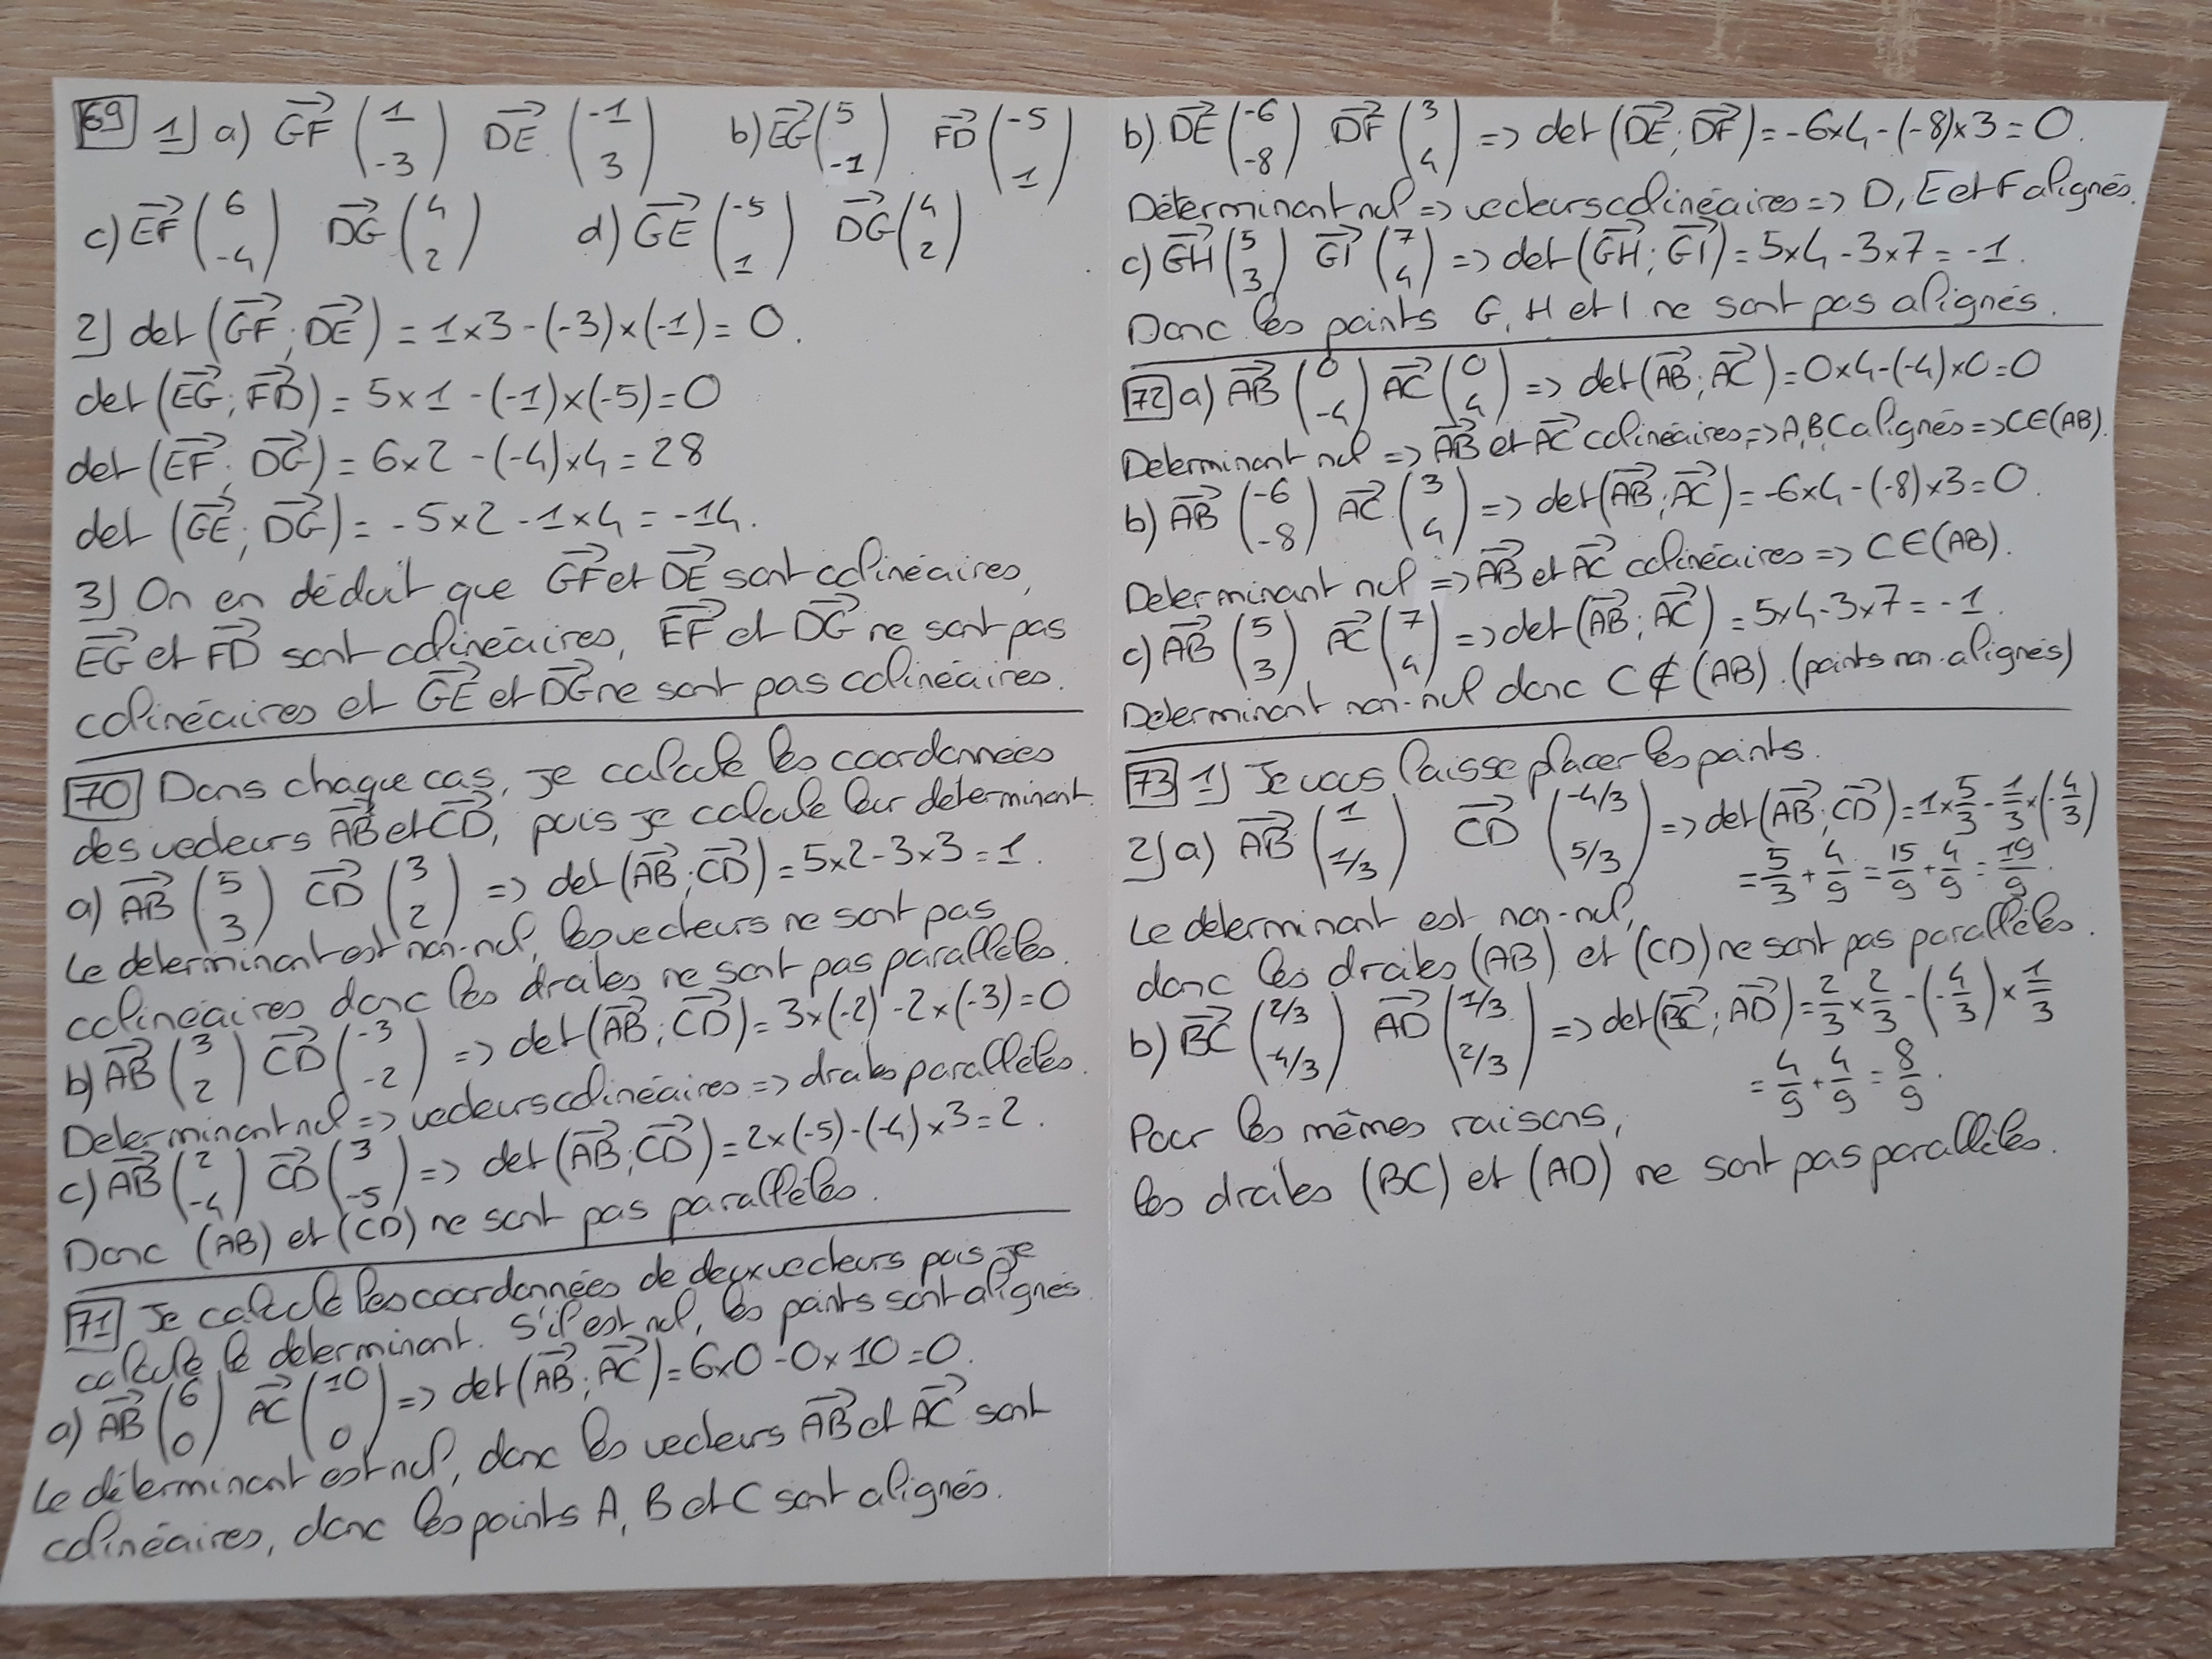 69 1) a) GF→ (1 ; -3) DE→ (-1 ; 3) b) EG→ (5 ; -1) FD→ (-5 ; 1)
c) EF→ (6 ; -4) DG→ (4 ; 2) d) GE→ (-5 ; 1) DG→ (4 ; 2)
2) det (GF→ ; DE→) = 1×3 - (-3)×(-1) = 0.
det (EG→ ; FD→) = 5×1 - (-1)×(-5) = 0
det (EF→ ; DG→) = 6×2 - (-4)×4 = 28
det (GE→ ; DG→) = -5×2 - 1×4 = -14.
3) On en déduit que GF→ et DE→ sont colinéaires,
EG→ et FD→ sont colinéaires, EF→ et DG→ ne sont pas
colinéaires et GE→ et DG→ ne sont pas colinéaires.
70 Dans chaque cas, je calcule les coordonnées
des vecteurs AB→ et CD→, puis je calcule leur determinant.
a) AB→ (5 ; 3) CD→ (3 ; 2) => det (AB→ ; CD→) = 5×2 - 3×3 = 1.
Le determinant est non-nul, les vecteurs ne sont pas
colinéaires donc les droites ne sont pas parallèles.
b) AB→ (3 ; 2) CD→ (-3 ; -2) => det (AB→ ; CD→) = 3×(-2) - 2×(-3) = 0
Determinant nul => vecteurs colinéaires => droites parallèles.
c) AB→ (2 ; -4) CD→ (3 ; -5) => det (AB→ ; CD→) = 2×(-5) - (-4)×3 = 2.
Donc (AB) et (CD) ne sont pas parallèles.
71 Je calcule les coordonnées de deux vecteurs puis je
calcule le determinant. S'il est nul, les points sont alignés.
a) AB→ (6 ; 0) AC→ (10 ; 0) => det (AB→ ; AC→) = 6×0 - 0×10 = 0.
Le déterminant est nul, donc les vecteurs AB→ et AC→ sont
colinéaires, donc les points A, B et C sont alignés.
b) DE→ (-6 ; -8) DF→ (3 ; 4) => det (DE→ ; DF→) = -6×4 - (-8)×3 = 0.
Déterminant nul => vecteurs colinéaires => D, E et F alignés.
c) GH→ (5 ; 3) GI→ (7 ; 4) => det (GH→ ; GI→) = 5×4 - 3×7 = -1.
Donc les points G, H et I ne sont pas alignés.
72 a) AB→ (0 ; -4) AC→ (0 ; 4) => det (AB→ ; AC→) = 0×4 - (-4)×0 = 0
Determinant nul => AB→ et AC→ colinéaires => A, B C alignés => C∈(AB).
b) AB→ (-6 ; -8) AC→ (3 ; 4) => det (AB→ ; AC→) = -6×4 - (-8)×3 = 0.
Determinant nul => AB→ et AC→ colinéaires => C∈(AB).
c) AB→ (5 ; 3) AC→ (7 ; 4) => det (AB→ ; AC→) = 5×4 - 3×7 = -1.
Determinant non-nul donc C∉(AB). (points non-alignés)
73 1) Je vous laisse placer les points.
2) a) AB→ (1 ; 1/3) CD→ (-4/3 ; 5/3) => det (AB→ ; CD→) = 1×5/3 - 1/3×(-4/3)
= 5/3 + 4/9 = 15/9 + 4/9 = 19/9.
Le determinant est non-nul,
donc les droites (AB) et (CD) ne sont pas parallèles.
b) BC→ (2/3 ; -4/3) AD→ (1/3 ; 2/3) => det (BC→ ; AD→) = 2/3×2/3 - (-4/3)×1/3
= 4/9 + 4/9 = 8/9.
Pour les mêmes raisons,
les droites (BC) et (AD) ne sont pas parallèles.